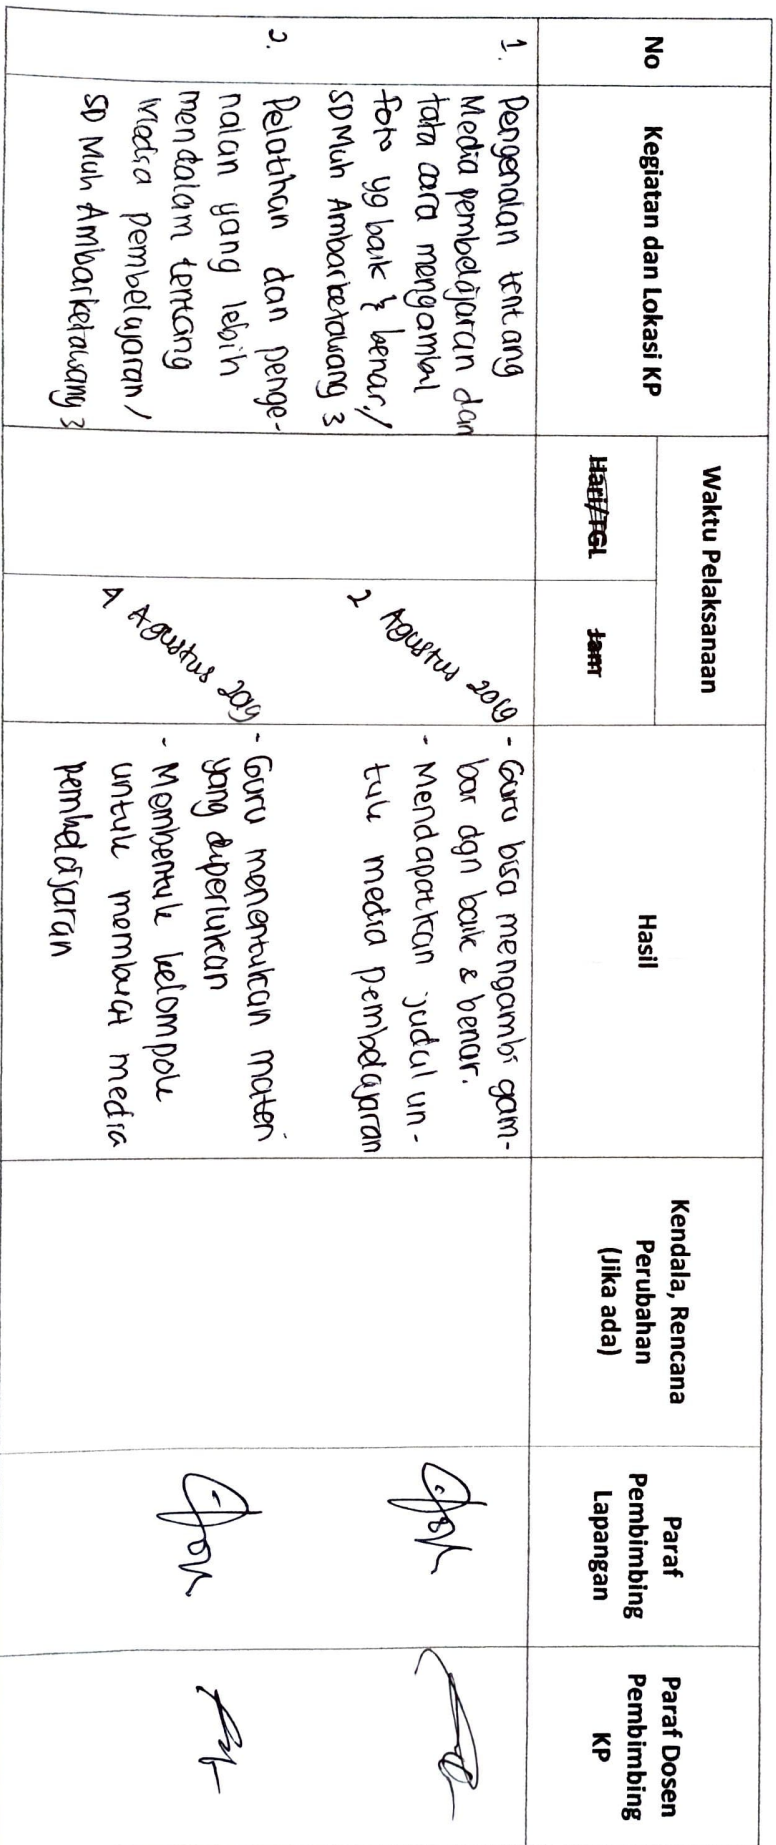 No
Kegiatan dan Lokasi KP
Waktu Pelaksanaan
Hari/TGL
Jam
Hasil
Kendala, Rencana
Perubahan
(Jika ada)
Paraf
Pembimbing
Lapangan
Paraf Dosen
Pembimbing
KP
1.
Pengenalan tentang
Media pembelajaran dan
tata cara mengambil
foto yg baik & benar /
SD Muh Ambarketawang 3
2 Agustus 2019
- Guru bisa mengambi gam-
bar dgn baik & benar.
- Mendapatkan judul un-
tuk media pembelajaran
2.
Pelatihan dan penge-
nalan yang lebih
mendalam tentang
Media pembelajaran /
SD Muh Ambarketawang 3
4 Agustus 2019
- Guru menentukan materi
yang diperlukan
- Membentuk kelompok
untuk membuat media
pembelajaran